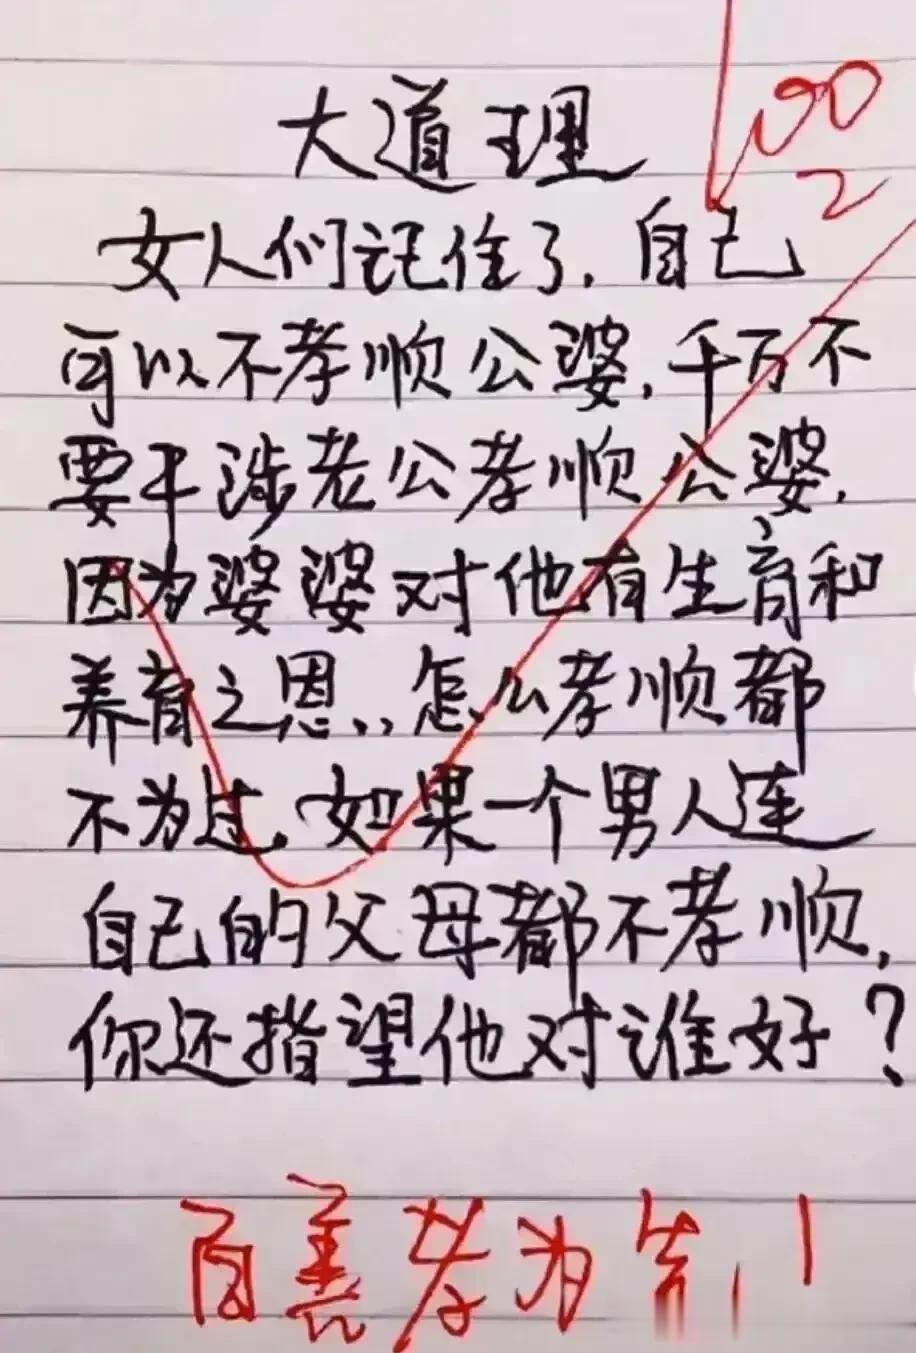 100
大道理
女人们记住了.自己
可以不孝顺公婆.千万不
要干涉老公孝顺公婆.
因为婆婆对他有生育和
养育之恩..怎么孝顺都
不为过.如果一个男人连
自己的父母都不孝顺.
你还指望他对谁好?
百善孝为先!